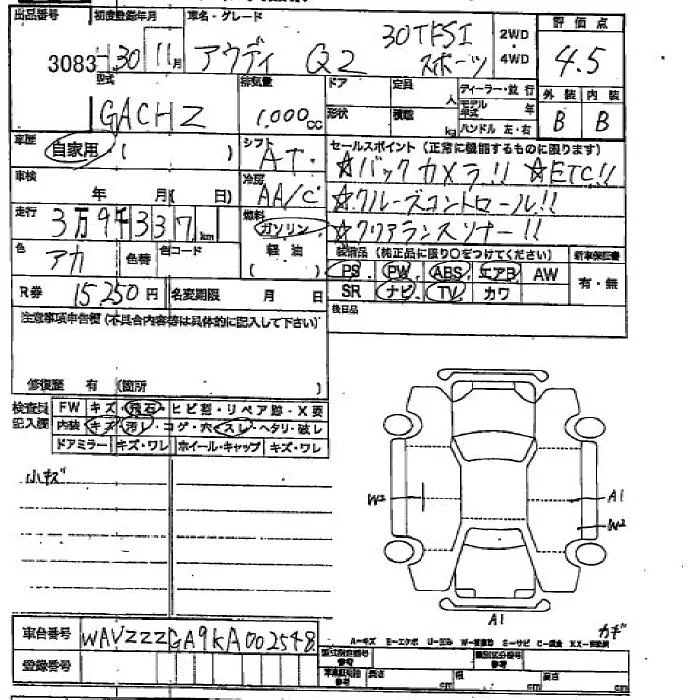 出品番号 初度登録年月 車名・グレード 評価点
3083 30 11月 アウディ Q2 30TFSI スポーツ 2WD・4WD 4.5
型式 排気量 ドア 定員 人 ディーラー・並行 外装 内装
GACHZ 1,000cc 形状 積載 kg モデル年式 年 ハンドル 左・右 B B
車歴 自家用・( ) シフト AT セールスポイント (正常に機能するものに限ります)
☆バックカメラ!! ☆ETC!!
車検 年 月( 日) 冷房 AA/C ☆クルーズコントロール!!
走行 3万9千337km 燃料 ガソリン ☆クリアランスソナー!!
色 アカ 色替 色コード 軽油 装備品 (純正品に限り○をつけてください) 新車保証書
PS PW ABS エアB AW 有・無
R券 15250円 名変期限 月 日 SR ナビ TV カワ
注意事項申告欄 (不具合内容等は具体的に記入して下さい) 後日品
修復歴 有 (箇所 )
検査員記入欄 FW キズ・飛石・ヒビ割・リペア跡・X要
内装 キズ・汚レ・コゲ・穴・スレ・ヘタリ・破レ
ドアミラー キズ・ワレ ホイール・キャップ キズ・ワレ
小キズ
W2 A1
W2
A1
カギ
A-キズ E-エクボ U-凹み W-補修跡 S-サビ C-腐食 XX-交換済
車台番号 WAVZZZGA9KA002548
登録番号 型式指定番号 参考 類別区分番号 参考
長さ cm 幅 cm 高さ cm